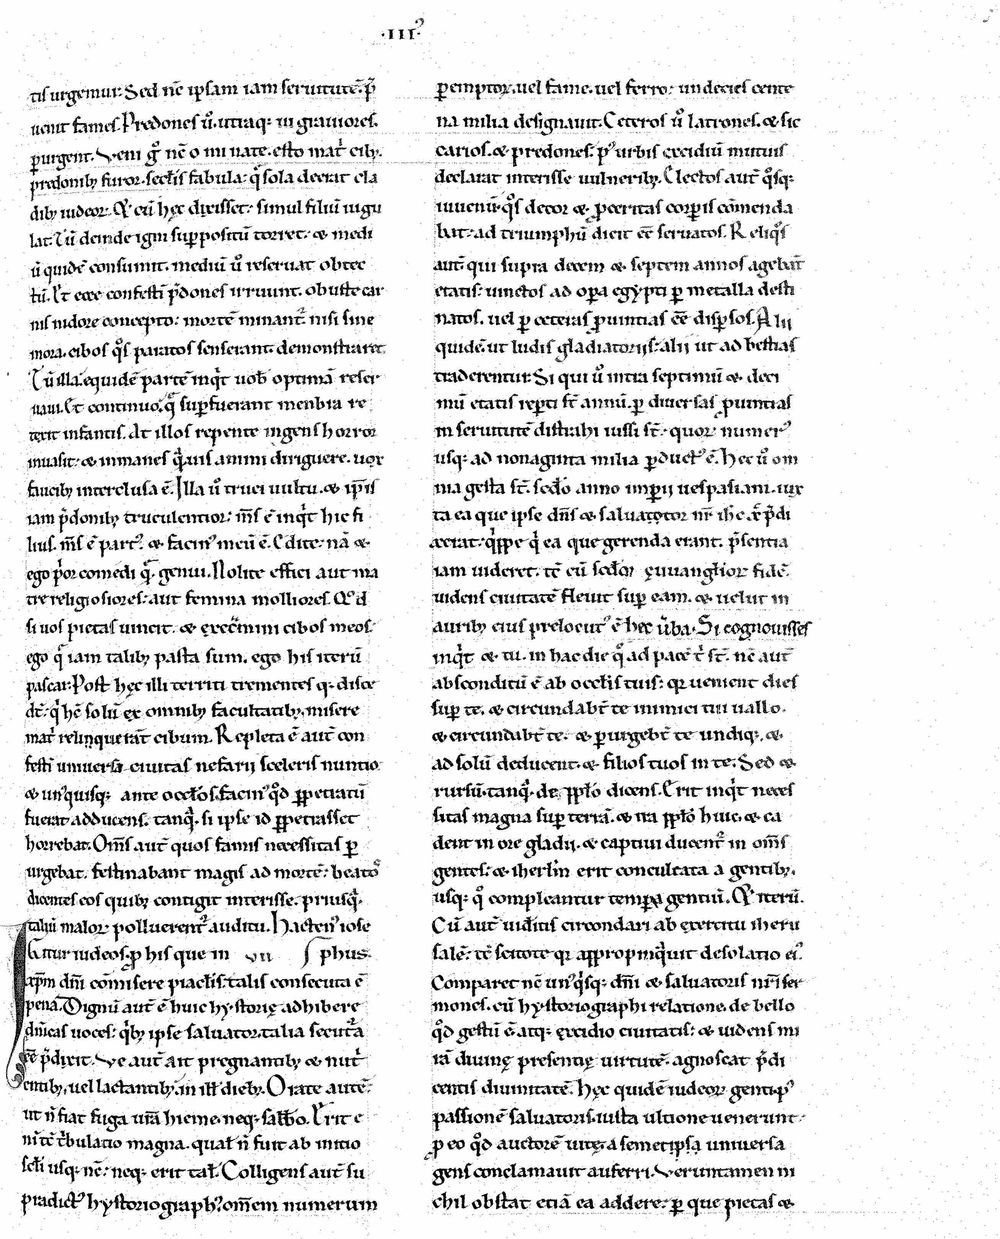 ·III·
tis urgemur. Sed nē ipsam iam seruitutē p̄
uenit fames. Predones ū utraq; iu grauiores.
ꝑurgent. Veni gͦ nē o mi nate. esto mat̄ cib.
predonib; furor. sectis fabula: q̄ sola deerat cla
dib; iudeor. Et cū hęc dixisset: simul filiū iugu
lat. Tū deinde igni suppositū torret. & medi
ū quidē consumit. mediū ū reseruat obtec
tū. Et ecce confestī p̄dones irruunt. obuste car
nis nidore concepto: mortē minant̄ nisi sine
mora. cibos q̄s paratos senserant demonstraret.
Tū illa. equidē partē inq̄t uob optimā reser
uaui. Et continuo. q̄ supfuerant menbra re
texit infantis. At illos repente ingens horror
inuasit: & inmanes q̄uis animi diriguere. uox
faucib; interclusa ē. Illa ū truci uultu. & ip̄is
iam p̄donib; truculentior: m̄s ē inq̄t hic fi
lius. m̄s ē part᾿. & facin᾿ meū ē. Edite: nā &
ego p̄or comedi q̄ genui. Nolite effici aut ma
tre religiosiores: aut femina molliores. Qd
si uos pietas uincit. & execr̄mini cibos meos.
ego q̄ iam talib; pasta sum. ego his iterū
pascar. Post hęc illi territi trementes q; disce
dt̄. q̄ hē solū ex omnib; facultatib; misere
mat̄ relinquerat̄ cibum. Repleta ē aut̄ con
festī uniuersa ciuitas nefarij sceleris nuntio.
& un᾿quisq; ante occl̄os. facin᾿ q̄d ꝑpetratū
fuerat adducens. tanq̄ si ipse id ꝑpetrasset
horrebat. Om̄s aut̄ quos famis necessitas ꝑ
urgebat. festinabant magis ad mortē: beatoͬ
dicentes eos quib; contigit interisse. priusq̄
taliū malor polluerent̄ auditu. Hacten᾿ iose
Igitur iudeos. ꝓ his que in VII phus.
xp̄m dn̄i cōmisere piaclīs: talis consecuta ē
pena. Dignū aut̄ ē huic hystorię adhibere
dn̄icas uoces: q̄b; ipse saluator. talia secut̄a
eē p̄dixit. Ve aut̄ ait pregnantib; & nut̄
entib; uel lactantib; in ill̄ dieb. Orate autē:
ut n̄ fiat fuga ur̄a hieme. neq; sabbo. Erit e
ni tē t̄bulatio magna. qual̄ n̄ fuit ab initio
secl̄i usq; nē: neq; erit tal̄. Colligens aut̄ su
pradict᾿ hystoriograph᾿. omēm numerum
ꝑemptor. uel fame. uel ferro: undecies cente
na milia designauit. Ceteros ū latrones. & sic
carios. & predones: p᾿ urbis excidiū mutuis
declarat interisse uulnerib;. Electos aut̄ q̄sq;
iuuenū: q̄s decor & ꝓceritas corpis cōmenda
bat: ad triumphū dicit eē seruatos. Reliq̄s
aut̄ qui supra decem & septem annos agebāt
etatis: uinctos ad opa egypti ꝑ metalla desti
natos. uel ꝑ ceteras ꝓuintias eē disꝑsos. Alii
quidē ut ludis gladiatorijs: alij ut ad bestias
traderentur. Si qui ū intra septimū & deci
mū etatis reperti st̄ annū. ꝑ diuersas ꝓuintias
in seruitutē distrahi iussi st̄. quor numer᾿
usq; ad nonaginta milia ꝑduct᾿ ē. Hec ū om
nia gesta st̄. secd̄o anno imperij uespasiani. iux
ta ea que ipse dn̄s & saluatotor nr̄ ih̄c xp̄ p̄di
xerat: q̄ppe q̄ ea que gerenda erant. p̄sentia
iam uideret. tē cū secd̄ęm ęuuanglior fidē.
uidens ciuitatē fleuit sup eam. & uelut in
aurib; eius prelocut᾿ ē hęc ūba. Si cognouisses
inq̄t & tu. in hac die q̄ ad pacē t̄ st̄. nē aut̄
absconditū ē ab occl̄is tuis: qr uenient dies
sup te. & circundabt̄ te inimici tui uallo.
& circundabt̄ te. & ꝑurgebt̄ te undiq;. &
ad solū deducent. & filios tuos in te. Sed &
rursū. tanq̄ de ppl̄o dicens. Erit inq̄t neces
sitas magna sup terrā. & ira ppl̄o huic. & ca
dent in ore gladii. & captiui ducent̄ in om̄s
gentes: & iherl̄m erit conculcata a gentib;
usq; q̄ compleantur tempa gentiū. Et iterū.
Cū aut̄ uiditis circondari ab exercitu iheru
salē: tē scitote qr appropinq̄uit desolatio ei᾿.
Comparet nē un᾿q̄sq; dn̄i & saluatoris nr̄i ser
mones. cū hystoriographi relatione. de bello
q̄d gestū ē. atq; excidio ciuitatis: & uidens mi
rā diuinę presentię uirtutē. agnoscat p̄di
centis diuinitatē. Hęc quidē iudeor genti. p᾿
passionē saluatoris. iusta ultione uenerunt:
ꝓ eo q̄d auctorē uitę a semetipsa uniuersa
gens conclamauit auferri. Veruntamen ni
chil obstat etiā ea addere: ꝑ que pietas &